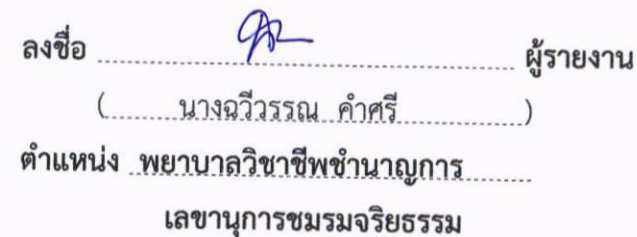 ลงชื่อ ........................ ผู้รายงาน
(........นางฉวีวรรณ คำศรี........)
ตำแหน่ง พยาบาลวิชาชีพชำนาญการ
เลขานุการชมรมจริยธรรม